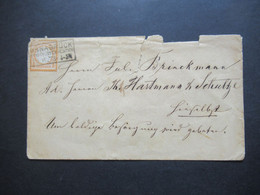 Herrn Jul. Brinckmann
Ad. Herren Th. Hartmann & Schultze
Hieselbst
Um baldige Besorgung wird gebeten.